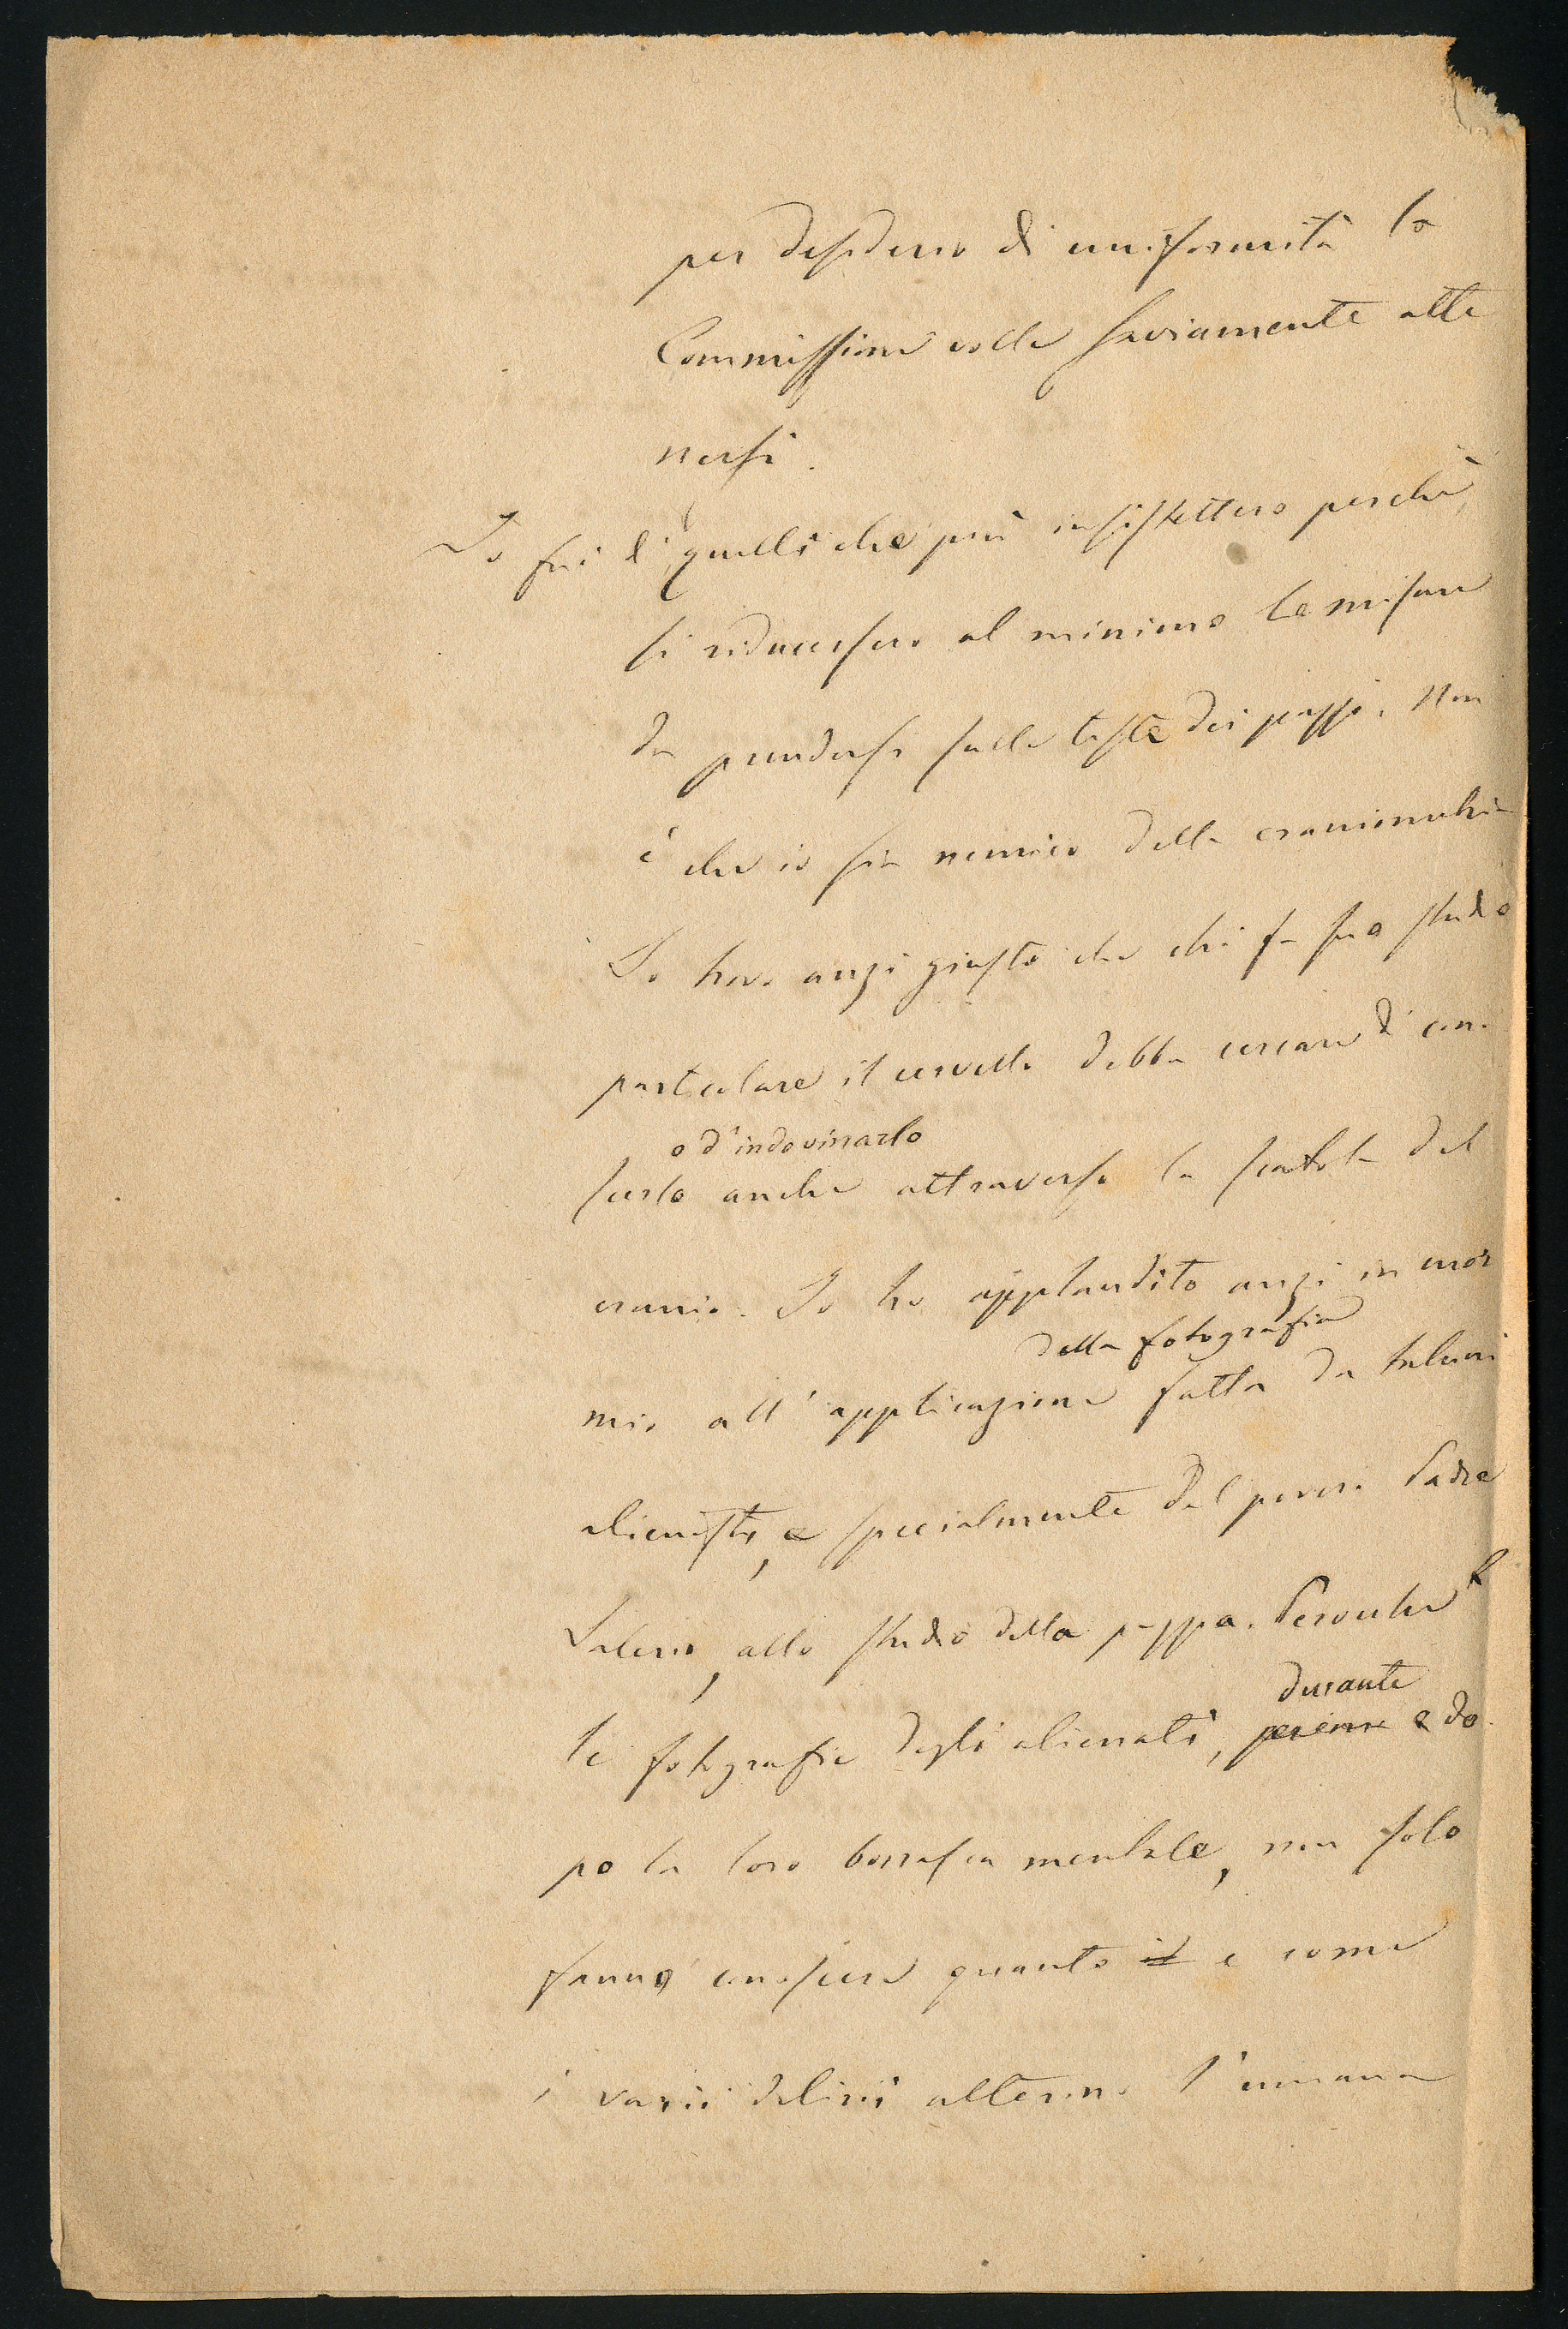 per desiderio di uniformità la
Commissione volle saviamente atte
nersi.
Io fui di quelli che più insistettero perchè
si riducessero al minimo le misure
da prendersi sulla testa dei pazzi. Non
è che io sia nemico della craniometria
Io trovo anzi giusto che chi fa suo studio
particolare il cervello debba cercare di cono
o d'indovinarlo
scerlo anche attraverso la scatola del
cranio. Io ho applaudito anzi in cuor
della fotografia
mio all'applicazione fatta da taluni
alienisti, e specialmente dal povero Padre
Salerio, allo studio della pazzia. Perocchè
durante
le fotografie degli alienati, e do
po la loro burrasca mentale, non solo
fanno conoscere quanto il e come
i varii delirii alterino l'umana